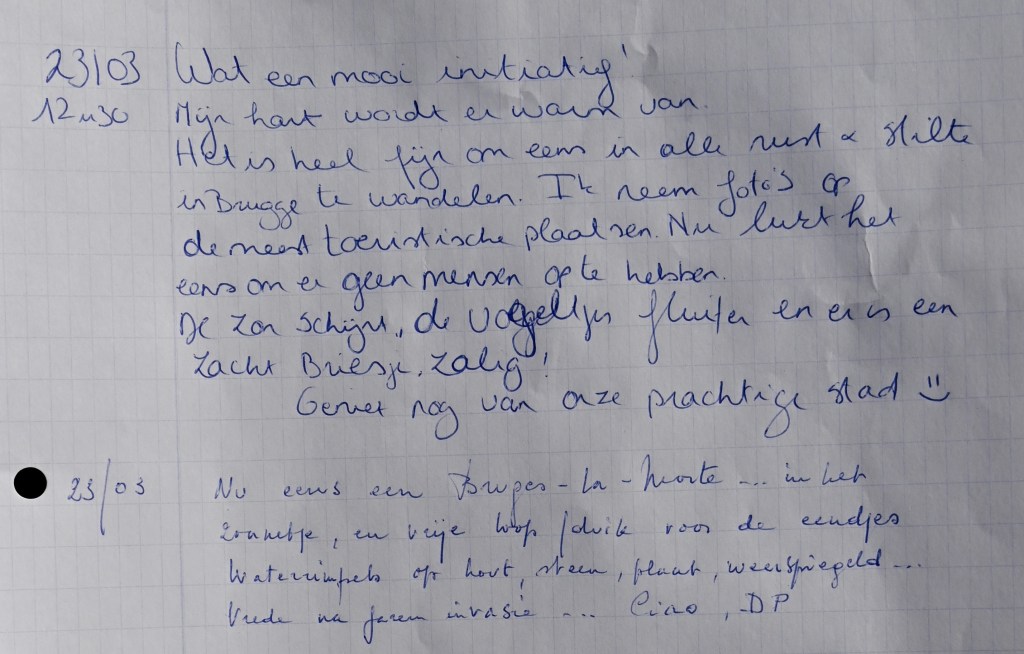 23/03 Wat een mooi initiatief!
12u30 Mijn hart wordt er warm van.
Het is heel fijn om eens in alle rust & stilte
in Brugge te wandelen. Ik neem foto's op
de meest toeristische plaatsen. Nu lukt het
eens om er geen mensen op te hebben.
De zon schijnt, de vogeltjes fluiten en er is een
zacht Briesje, zalig!
Geniet nog van onze prachtige stad =)
23/03 Nu eens een Bruges-la-Morte ... in het
zonnetje, en vrije loop / duik voor de eendjes
Waterrimpels op hout, steen, plaat, weerspiegeld...
Vrede na jaren invasie ... Ciao, DP